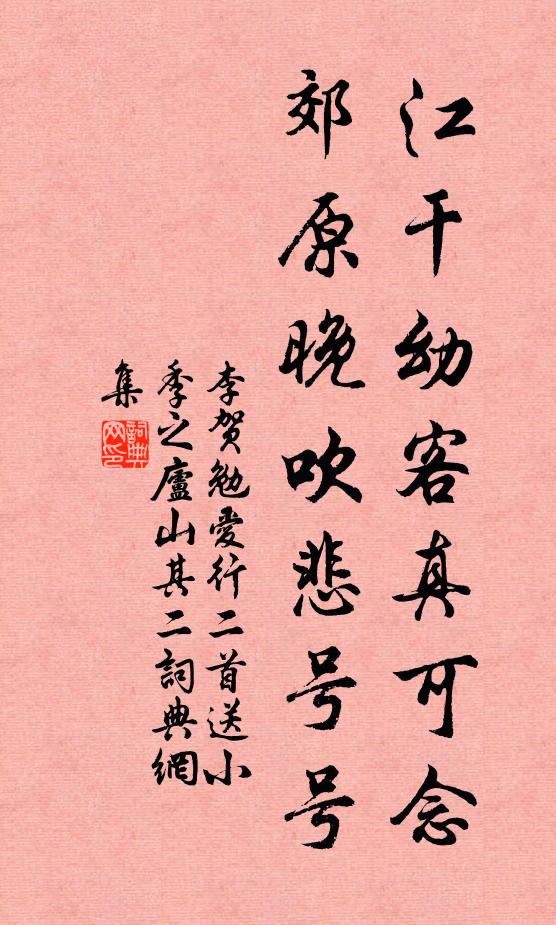 江干幼客真可念
郊原晚吹悲号号
李贺勉爱行二首送小
季之廬山其二詞典網
集
詞典网印